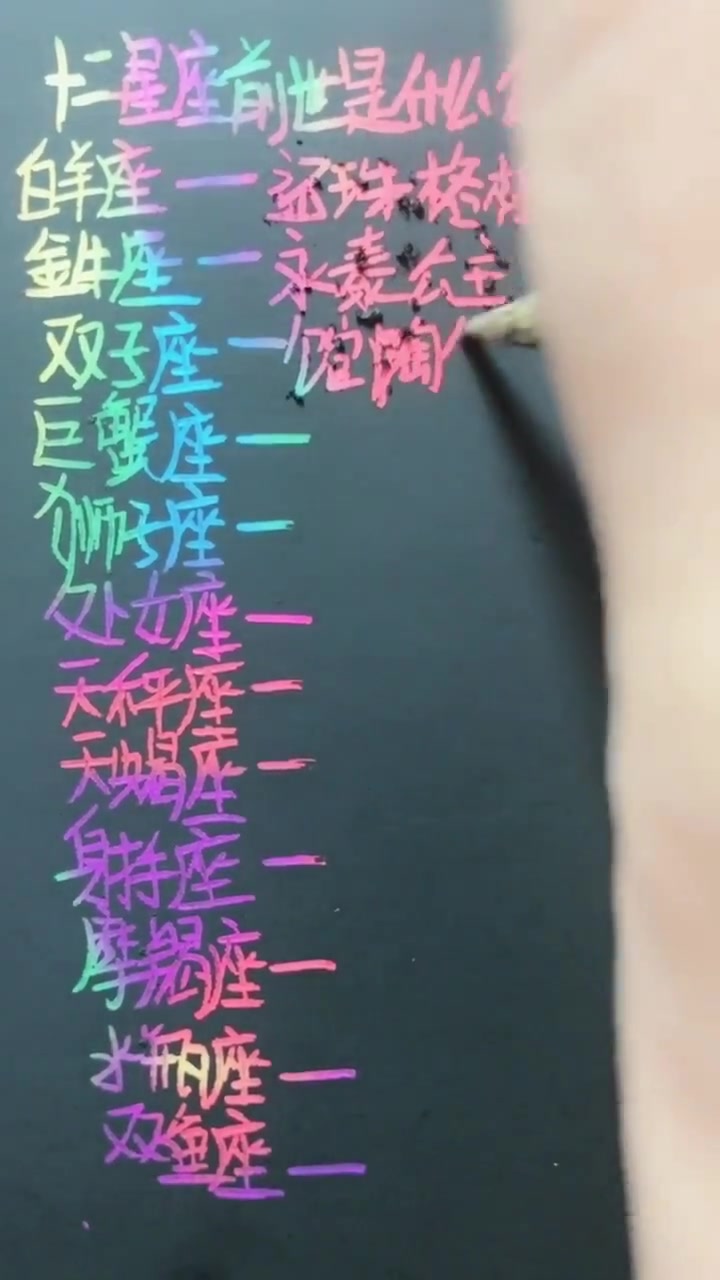 十二星座前世是什么
白羊座一还珠格格
金牛座一永素公主
双子座一
巨蟹座一
狮子座一
处女座一
天秤座一
天蝎座一
射手座一
摩羯座一
水瓶座一
双鱼座一